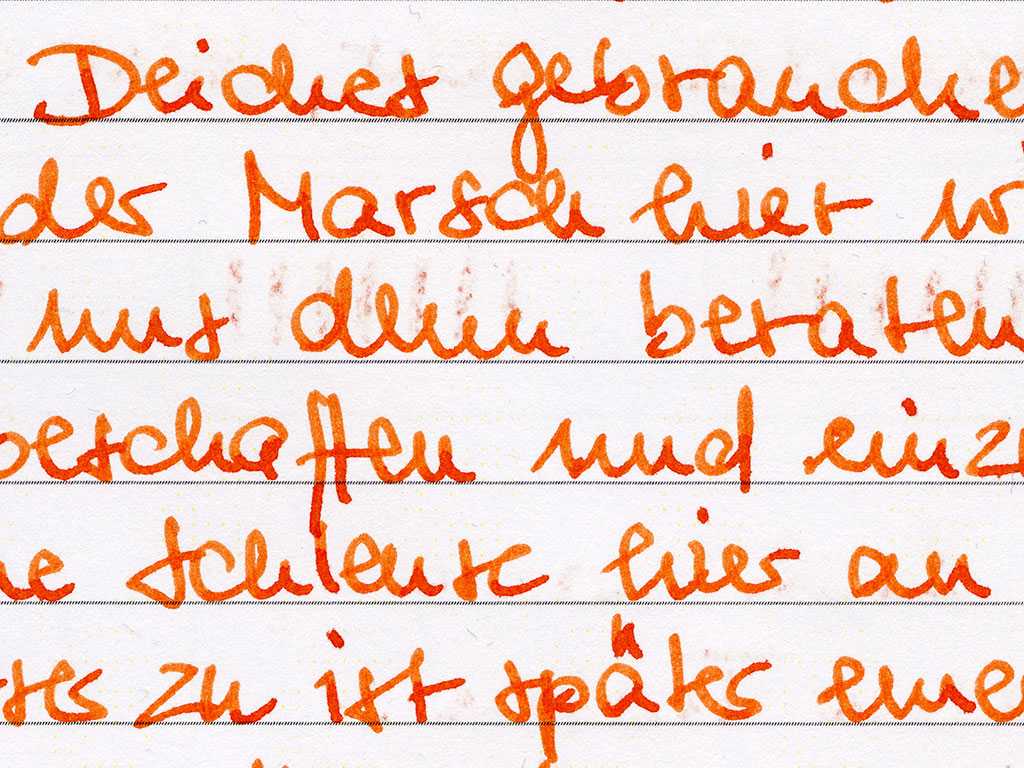 Deiches gebrauche
der Marsch hier
uns denn beraten
beschaffen und einz
Schleuse hier an
zu ist später eine